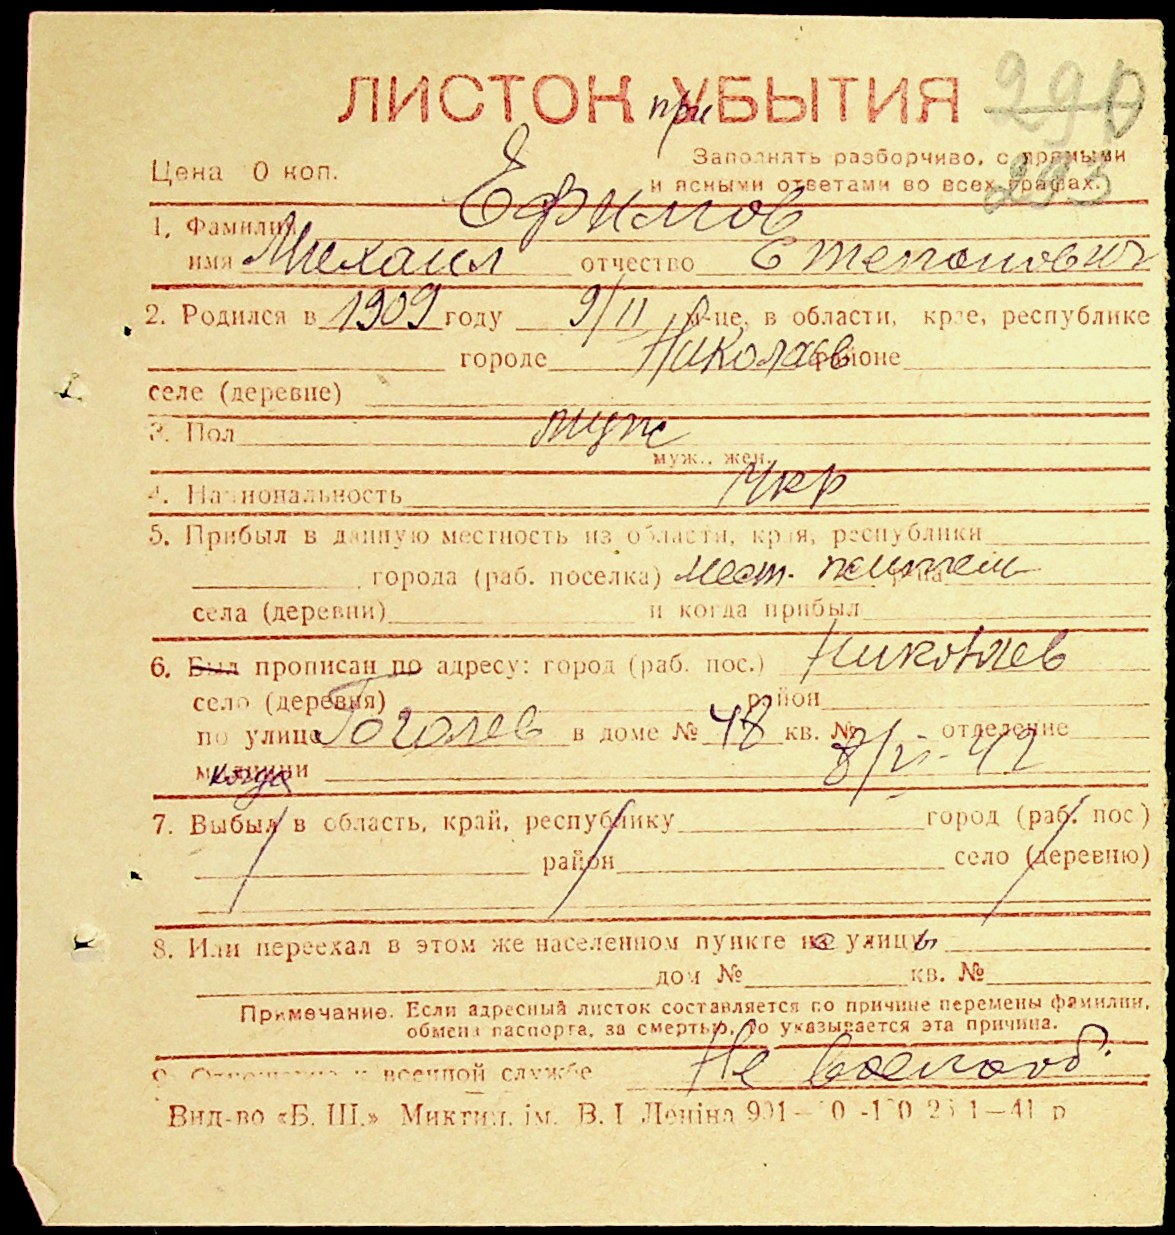 290
ЛИСТОК при УБЫТИЯ
293
Заполнять разборчиво, с прямыми
Цена 0 коп.
и ясными ответами во всех графах.
1. Фамилия Ефимов
имя Михаил отчество Степанович
2. Родился в 1909 году 9/II м-це, в области, крае, республике
городе Николаев районе
селе (деревне)
3. Пол муж
муж., жен.
4. Национальность Укр
5. Прибыл в данную местность из области, края, республики
города (раб. поселка) мест. жител
села (деревни) и когда прибыл
6. Был прописан по адресу: город (раб. пос.) Николаев
село (деревня) район
по улице Гоголев в доме № 48 кв. № отделение
милиции когда 8/VI-42
7. Выбыл в область, край, республику город (раб. пос)
район село (деревню)
8. Или переехал в этом же населенном пункте на улицы
дом № кв. №
Примечание. Если адресный листок составляется по причине перемены фамилии,
обмена паспорта, за смертью, то указывается эта причина.
9. Отношение к военной службе Не военнооб.
Вид-во «Б. Ш.» Микгип. ім. В. І Леніна